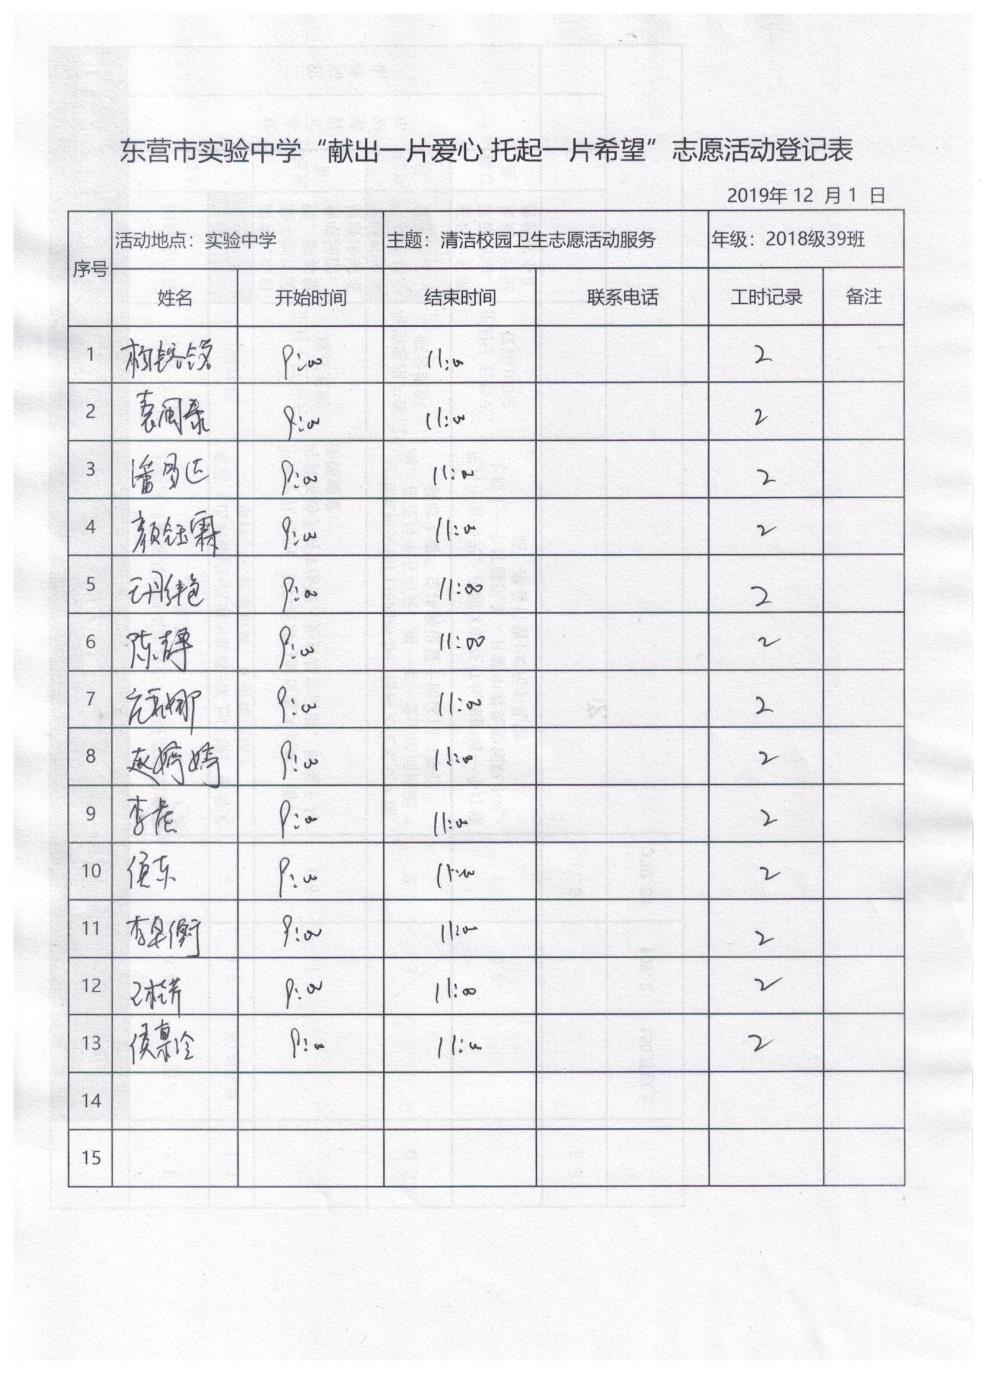 东营市实验中学“献出一片爱心 托起一片希望”志愿活动登记表
2019年 12 月 1 日
序号 活动地点：实验中学 主题：清洁校园卫生志愿活动服务 年级：2018级39班
姓名 开始时间 结束时间 联系电话 工时记录 备注
1 9:00 11:00 2
2 袁闽泰 9:00 11:00 2
3 9:00 11:00 2
4 颜钰霖 9:00 11:00 2
5 9:00 11:00 2
6 陈静 9:00 11:00 2
7 9:00 11:00 2
8 赵婷婷 9:00 11:00 2
9 9:00 11:00 2
10 侯东 9:00 11:00 2
11 9:00 11:00 2
12 9:00 11:00 2
13 9:00 11:00 2
14
15